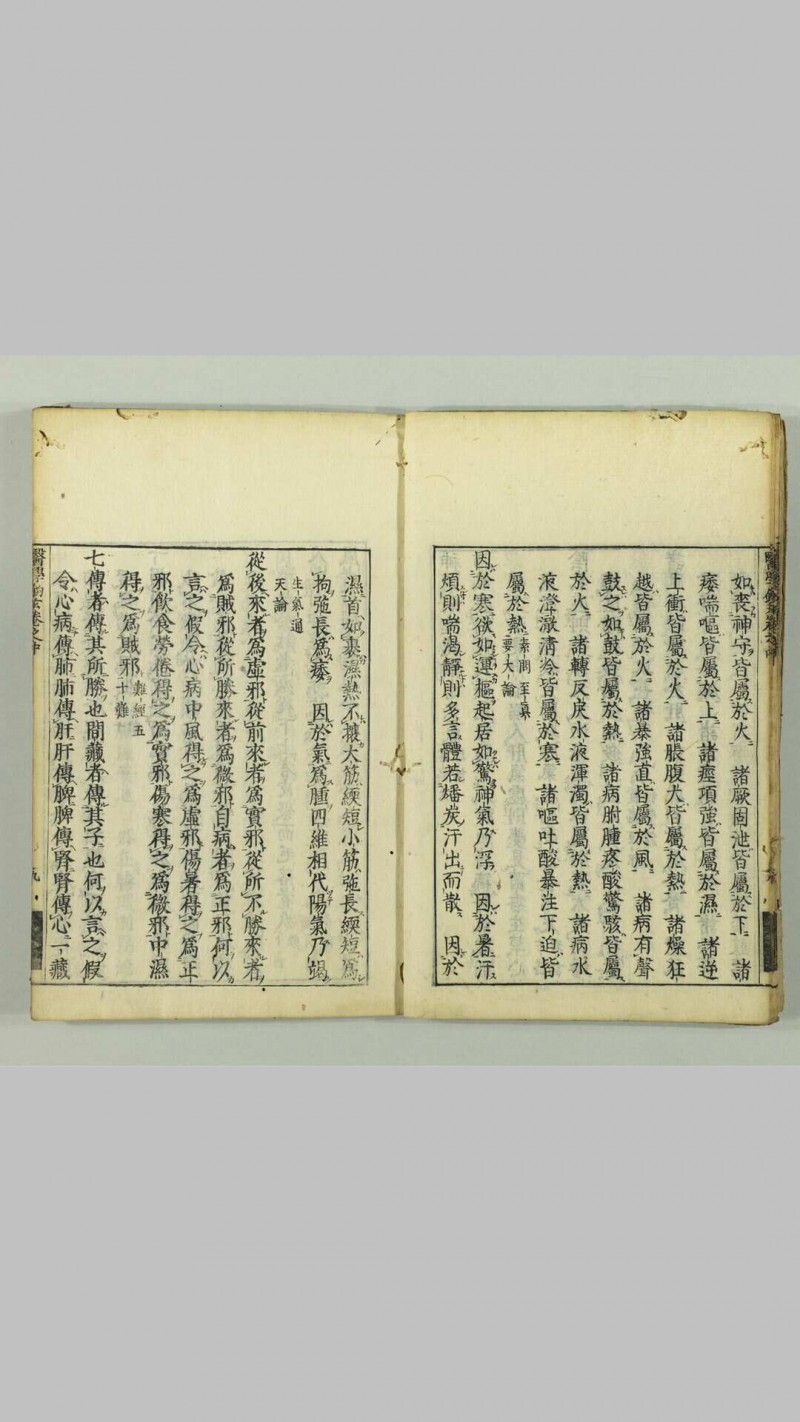 如喪神守皆屬於火 諸厥固泄皆屬於下 諸
痿喘嘔皆屬於上 諸痙項強皆屬於濕 諸逆
上衝皆屬於火 諸脹腹大皆屬於熱 諸燥狂
越皆屬於火 諸暴強直皆屬於風 諸病有聲
鼓之如鼓皆屬於熱 諸病胕腫疼酸驚駭皆屬
於火 諸轉反戾水液渾濁皆屬於熱 諸病水
液澄澈清冷皆屬於寒 諸嘔吐酸暴注下迫皆
屬於熱 素問至真要大論
因於寒欲如運樞起居如驚神氣乃浮 因於暑汗
煩則喘渴靜則多言體若燔炭汗出而散 因於
濕首如裹濕熱不攘大筋緛短小筋弛長緛短為
拘弛長爲痿 因於氣爲腫四維相代陽氣乃竭
生氣通天論
從後來者爲虛邪從前來者爲實邪從所不勝來者
爲賊邪從所勝來者爲微邪自病者爲正邪何以
言之假令心病中風得之爲虛邪傷暑得之爲正
邪飲食勞倦得之爲實邪傷寒得之爲微邪中濕
得之爲賊邪 難經五十難
七傳者傳其所勝也間藏者傳其子也何以言之假
令心病傳肺肺傳肝肝傳脾脾傳腎腎傳心一藏